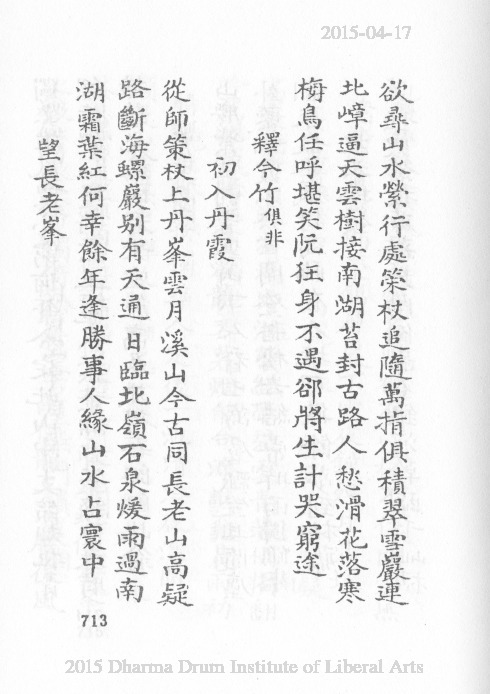 2015-04-17
欲尋山水縈行處策杖追隨萬指俱積翠雪巖連
北嶂逼天雲樹接南湖苔封古路人愁滑花落寒
梅鳥任呼堪笑阮狂身不遇卻將生計哭窮途
釋今竹俱非
初入丹霞
從師策杖上丹峯雲月溪山今古同長老山高疑
路斷海螺巖别有天通日臨北嶺石泉煖雨過南
湖霜葉紅何幸餘年逢勝事人緣山水占寰中
望長老峯
713
2015 Dharma Drum Institute of Liberal Arts